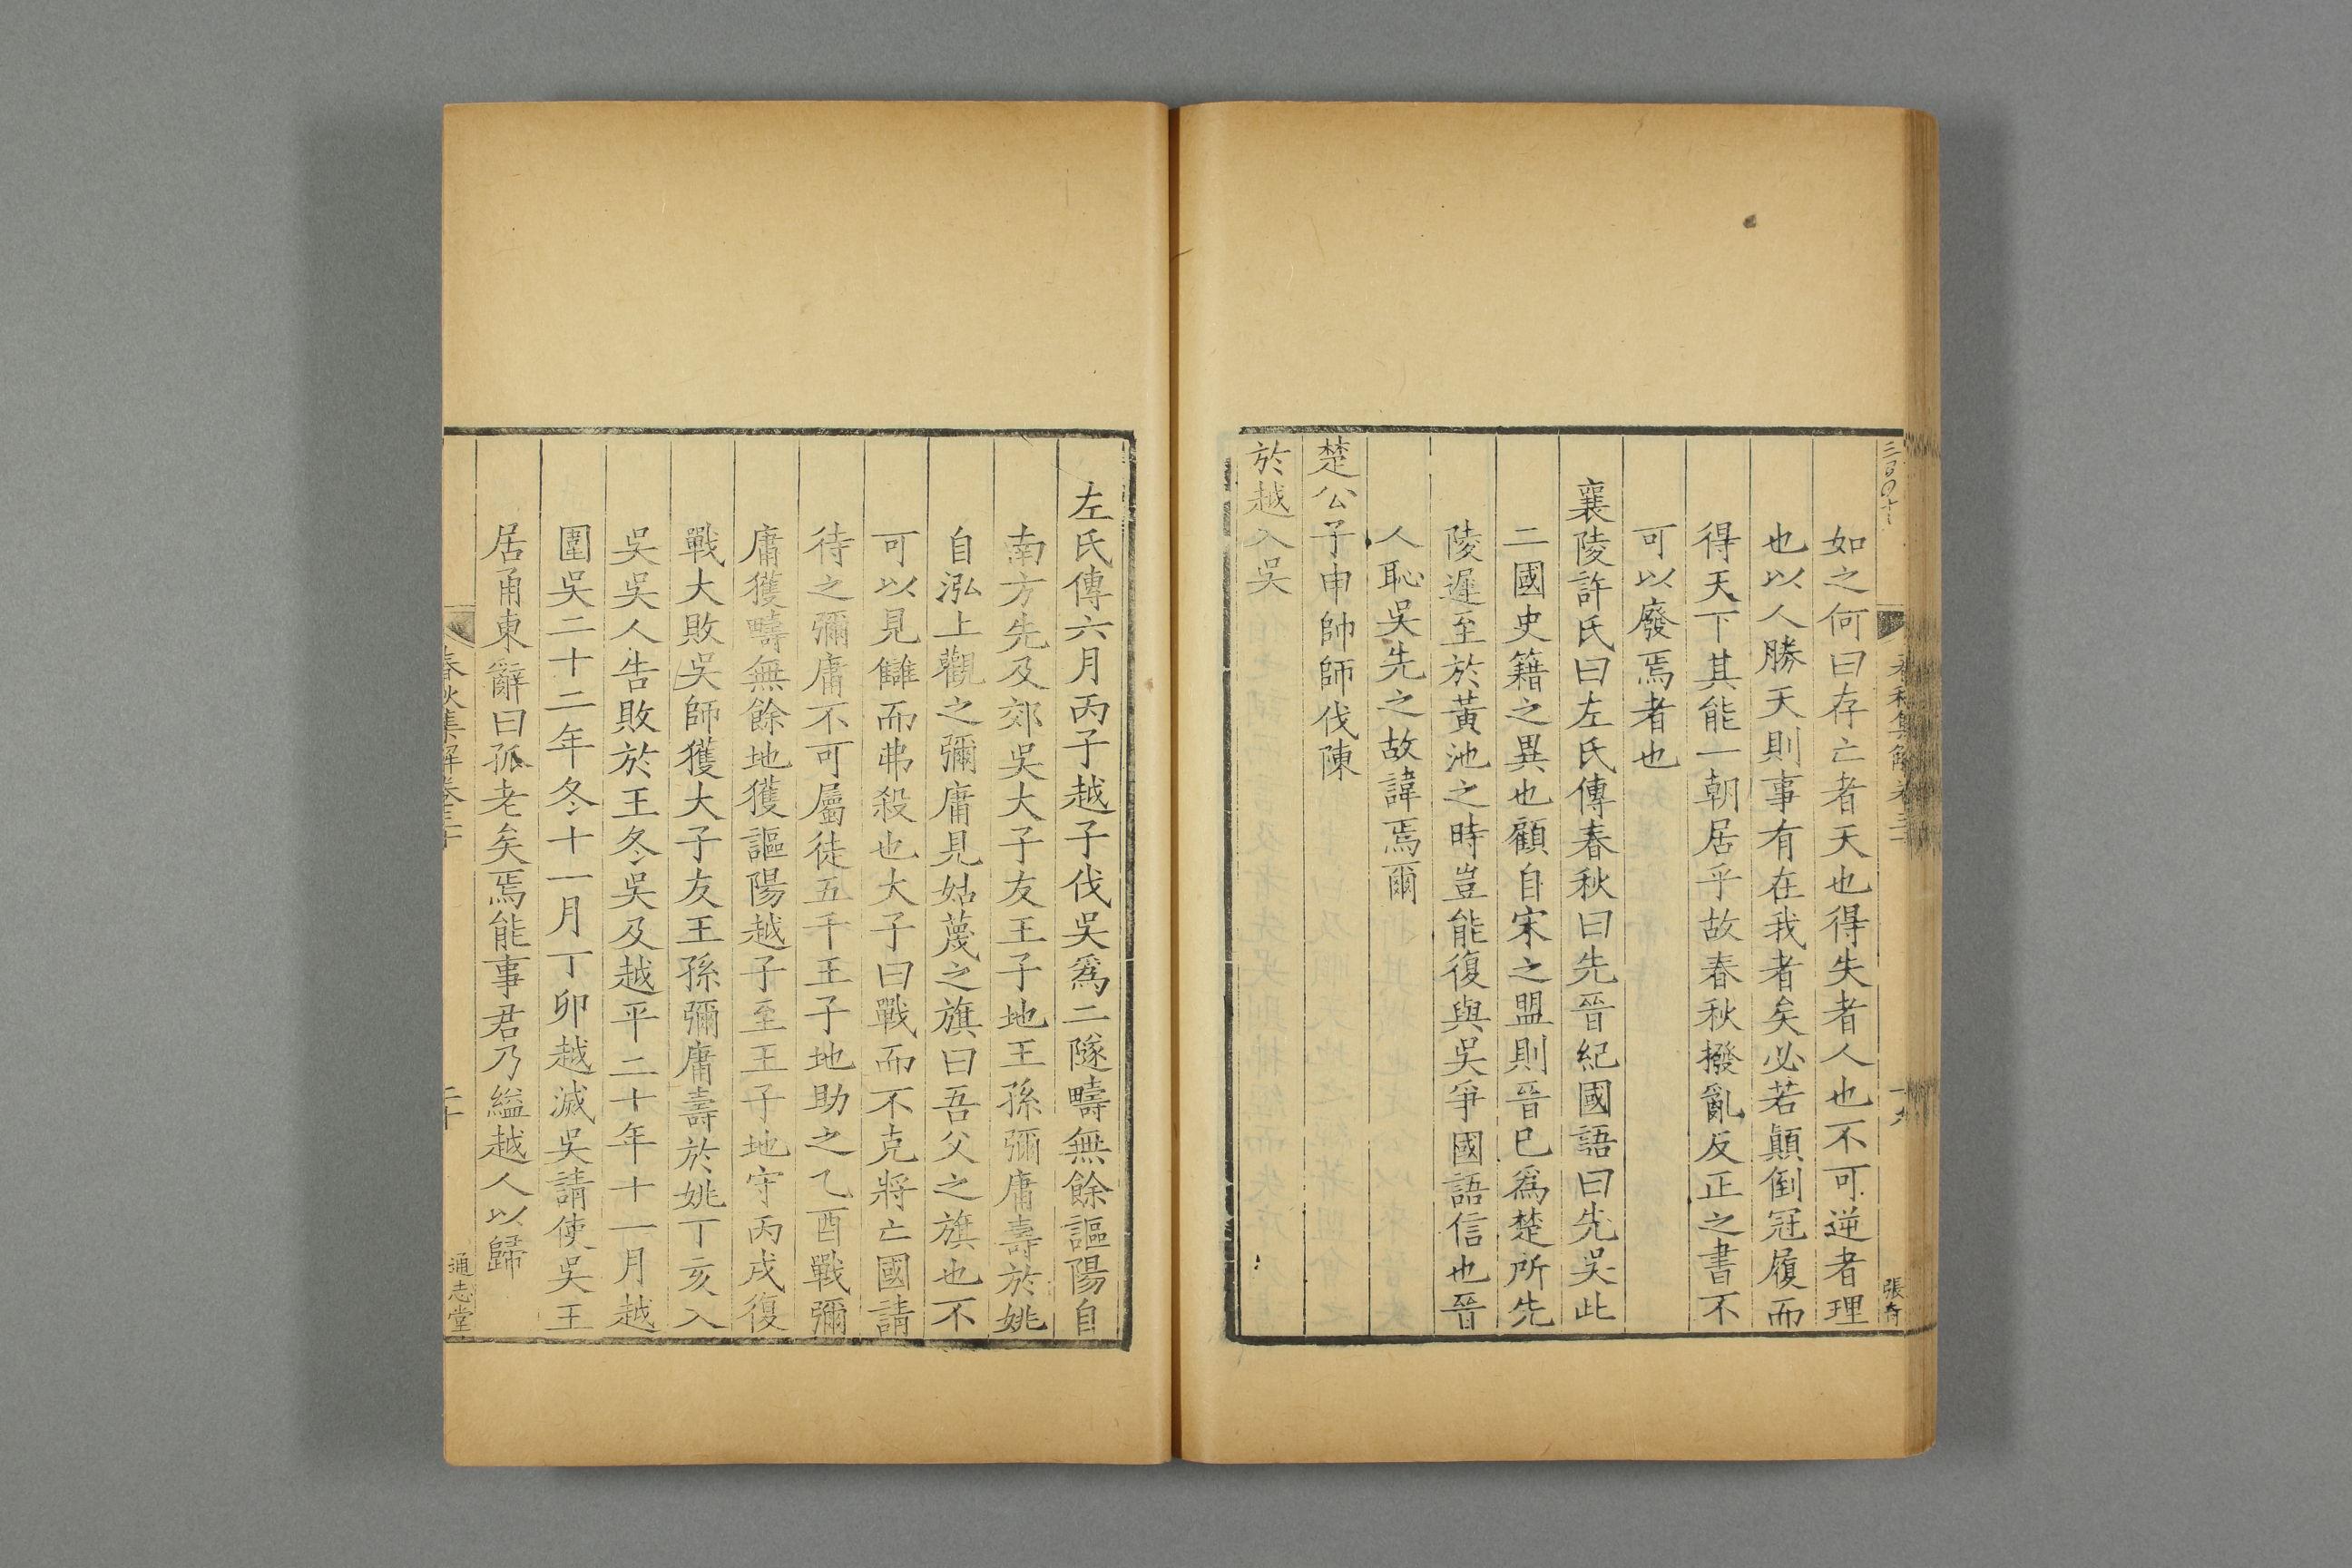 如之何曰存亡者天也得失者人也不可逆者理
也以人勝天則事有在我者矣必若顛倒冠履而
得天下其能一朝居乎故春秋撥亂反正之書不
可以廢焉者也
襄陵許氏曰左氏傳春秋曰先晉紀國語曰先吳此
二國史籍之異也顧自宋之盟則晉已爲楚所先
陵遲至於黃池之時豈能復與吳爭國語信也晉
人恥吳先之故諱焉爾
楚公子申帥師伐陳
於越入吳
張奇
左氏傳六月丙子越子伐吳爲二隧疇無餘謳陽自
南方先及郊吳大子友王子地王孫彌庸壽於姚
自泓上觀之彌庸見姑蔑之旗曰吾父之旗也不
可以見讎而弗殺也大子曰戰而不克將亡國請
待之彌庸不可屬徒五千王子地助之乙酉戰彌
庸獲疇無餘地獲謳陽越子至王子地守丙戌復
戰大敗吳師獲大子友王孫彌庸壽於姚丁亥入
吳吳人告敗於王冬吳及越平二十年十一月越
圍吳二十二年冬十一月丁卯越滅吳請使吳王
居甬東辭曰孤老矣焉能事君乃縊越人以歸
春秋集解卷三十
二十
通志堂